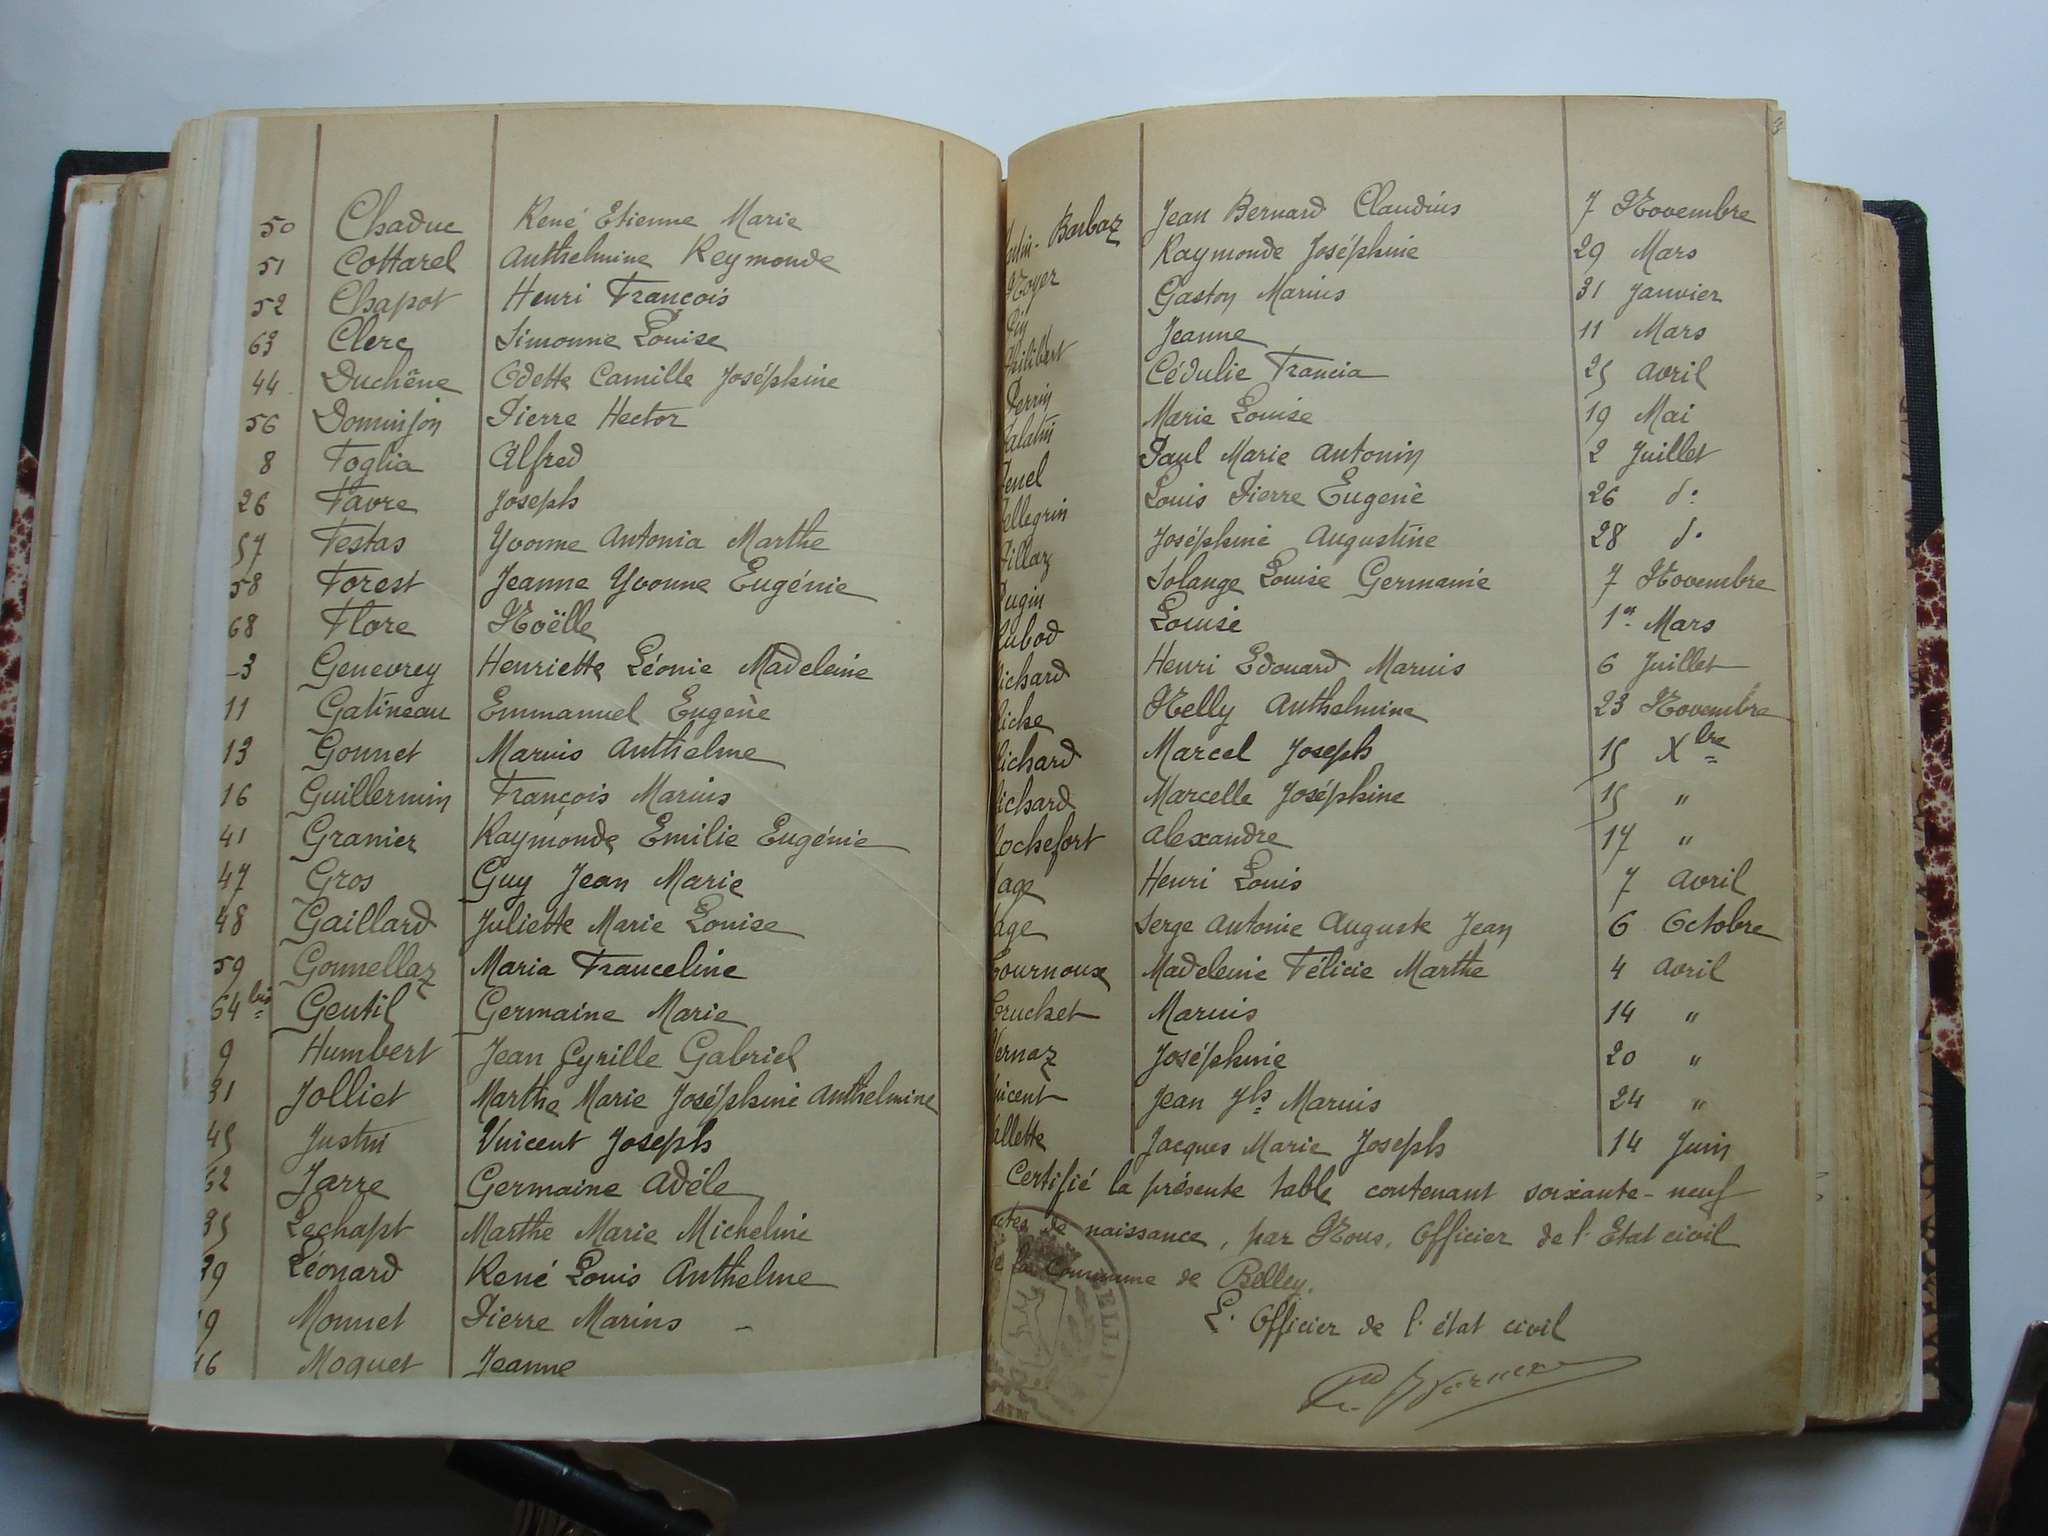 50 Chaduc René Etienne Marie
51 Cottarel Anthelmine Reymonde
52 Chapot Henri François
63 Clerc Simonne Louise
44 Duchêne Odette Camille Joséphine
56 Dominjon Pierre Hector
8 Foglia Alfred
26 Favre Joseph
57 Festas Yvonne Antonia Marthe
58 Forest Jeanne Yvonne Eugénie
68 Flore Noëlle
3 Genevrey Henriette Léonie Madeleine
11 Gatineau Emmanuel Eugène
13 Gonnet Marius Anthelme
16 Guillermin François Marius
41 Granier Raymonde Emilie Eugénie
47 Gros Guy Jean Marie
48 Gaillard Juliette Marie Louise
59 Gonnellaz Maria Franceline
64 bis Gentil Germaine Marie
9 Humbert Jean Cyrille Gabriel
31 Jolliet Marthe Marie Joséphine Anthelmine
45 Justin Vincent Joseph
62 Jarre Germaine Adèle
35 Lechapt Marthe Marie Micheline
29 Léonard René Louis Anthelme
19 Monnet Pierre Marius
16 Moquet Jeanne
Barbaz Jean Bernard Claudius 7 Novembre
Noyer Raymonde Joséphine 29 Mars
Gaston Marius 31 Janvier
Philibert Jeanne 11 Mars
Perrin Cédulie Francia 25 Avril
Palatin Marie Louise 19 Mai
Penel Paul Marie Antonin 2 Juillet
Pellegrin Louis Pierre Eugène 26 d°
Pillaz Joséphine Augustine 28 d°
Pugin Solange Louise Germaine 7 Novembre
Rubod Louise 1er Mars
Richard Henri Edouard Marius 6 Juillet
Riche Nelly Anthelmine 23 Novembre
Richard Marcel Joseph 15 Xbre
Richard Marcelle Joséphine 15 "
Rochefort Alexandre 17 "
Sage Henri Louis 7 Avril
Sage Serge Antonie Auguste Jean 6 Octobre
Tournoux Madeleine Félicie Marthe 4 Avril
Truchet Marius 14 "
Vernaz Joséphine 20 "
Vincent Jean Jh Marius 24 "
Vallette Jacques Marie Joseph 14 Juin
Certifié la présente table contenant soixante-neuf
actes de naissance, par Nous, Officier de l'Etat civil
de la Commune de Belley.
L'Officier de l'état civil
AIN